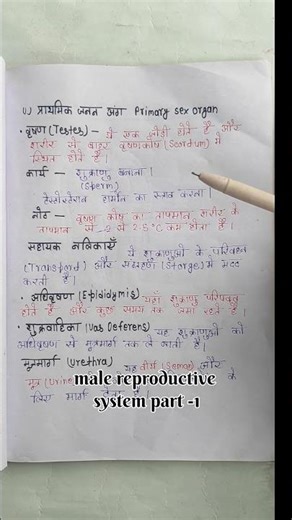 (1) प्राथमिक जनन अंग Primary sex organ
• वृषण (Testes) – ये एक जोड़ी होते हैं और
शरीर से बाहर वृषणकोष (Scordum) में
स्थित होते हैं।
कार्य – शुक्राणु बनाना।
(Sperm)
टेस्टोस्टेरोन हार्मोन का स्राव करना।
नोट – वृषण कोष का तापमान, शरीर के
तापमान से 2-2.5°C कम होता है।
सहायक नलिकाएँ
ये शुक्राणुओं के परिवहन
(Transpord) और संग्रहण (Storge) में मदद
करती हैं।
• अधिवृषण (Epidiymis) यहाँ शुक्राणु परिपक्व
होते हैं और कुछ समय तक जमा रहते हैं।
• शुक्रवाहिका (Vas Deferens) यह शुक्राणुओं को
अधिवृषण से मूत्रमार्ग तक ले जाती है।
मूत्रमार्ग (urethra) यह वीर्य (Semen) और
मूत्र (Urine) के
लिए मार्ग
male reproductive
system part -1